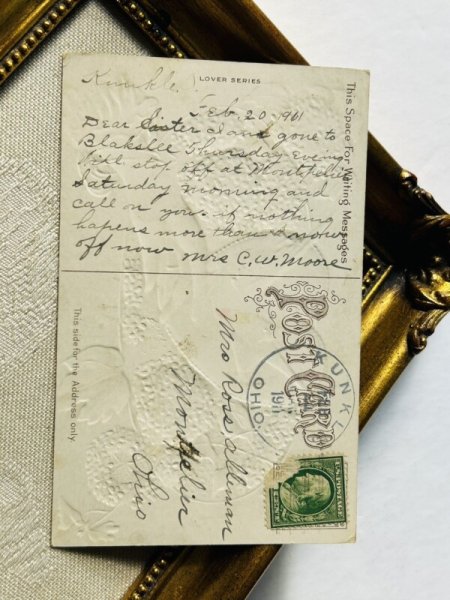 Kunkle.
LOVER SERIES
Feb. 20 1911
Dear Sister I am gone to
Blakslee Thursday evening
Will stop off at Montpelier
Saturday morning and
call on you if nothing
hapens more than I now
off now Mrs C. W. Moore
This Space For Writing Messages
This side for the Address only.
POST CARD
KUNKLE
OHIO.
1911
Mrs Ross Alleman
Montpelier
Ohio
U.S. POSTAGE